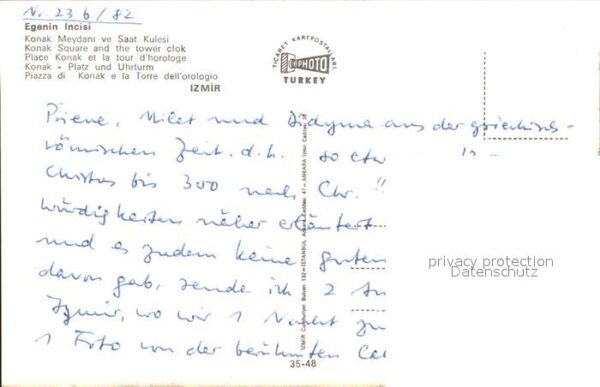 Nr. 236/82
Egenin Incisi
Konak Meydanı ve Saat Kulesi
Konak Square and the tower clok
Place Konak et la tour d'horologe
Konak - Platz und Uhrturm
Piazza di Konak e la Torre dell'orologio
IZMİR
TICARET KARTPOSTALLARI
PHOTO
TURKEY
Priene, Milet und Didyma aus der griechisch-
römischen Zeit. d.h. so etw
Christus bis 300 nach Chr.
würdigkeiten näher erläutert
und es zudem keine guten
davon gab, sende ich 2
Izmir, wo wir 1 Nacht
1 Foto von der berühmten
privacy protection
Datenschutz
35-48